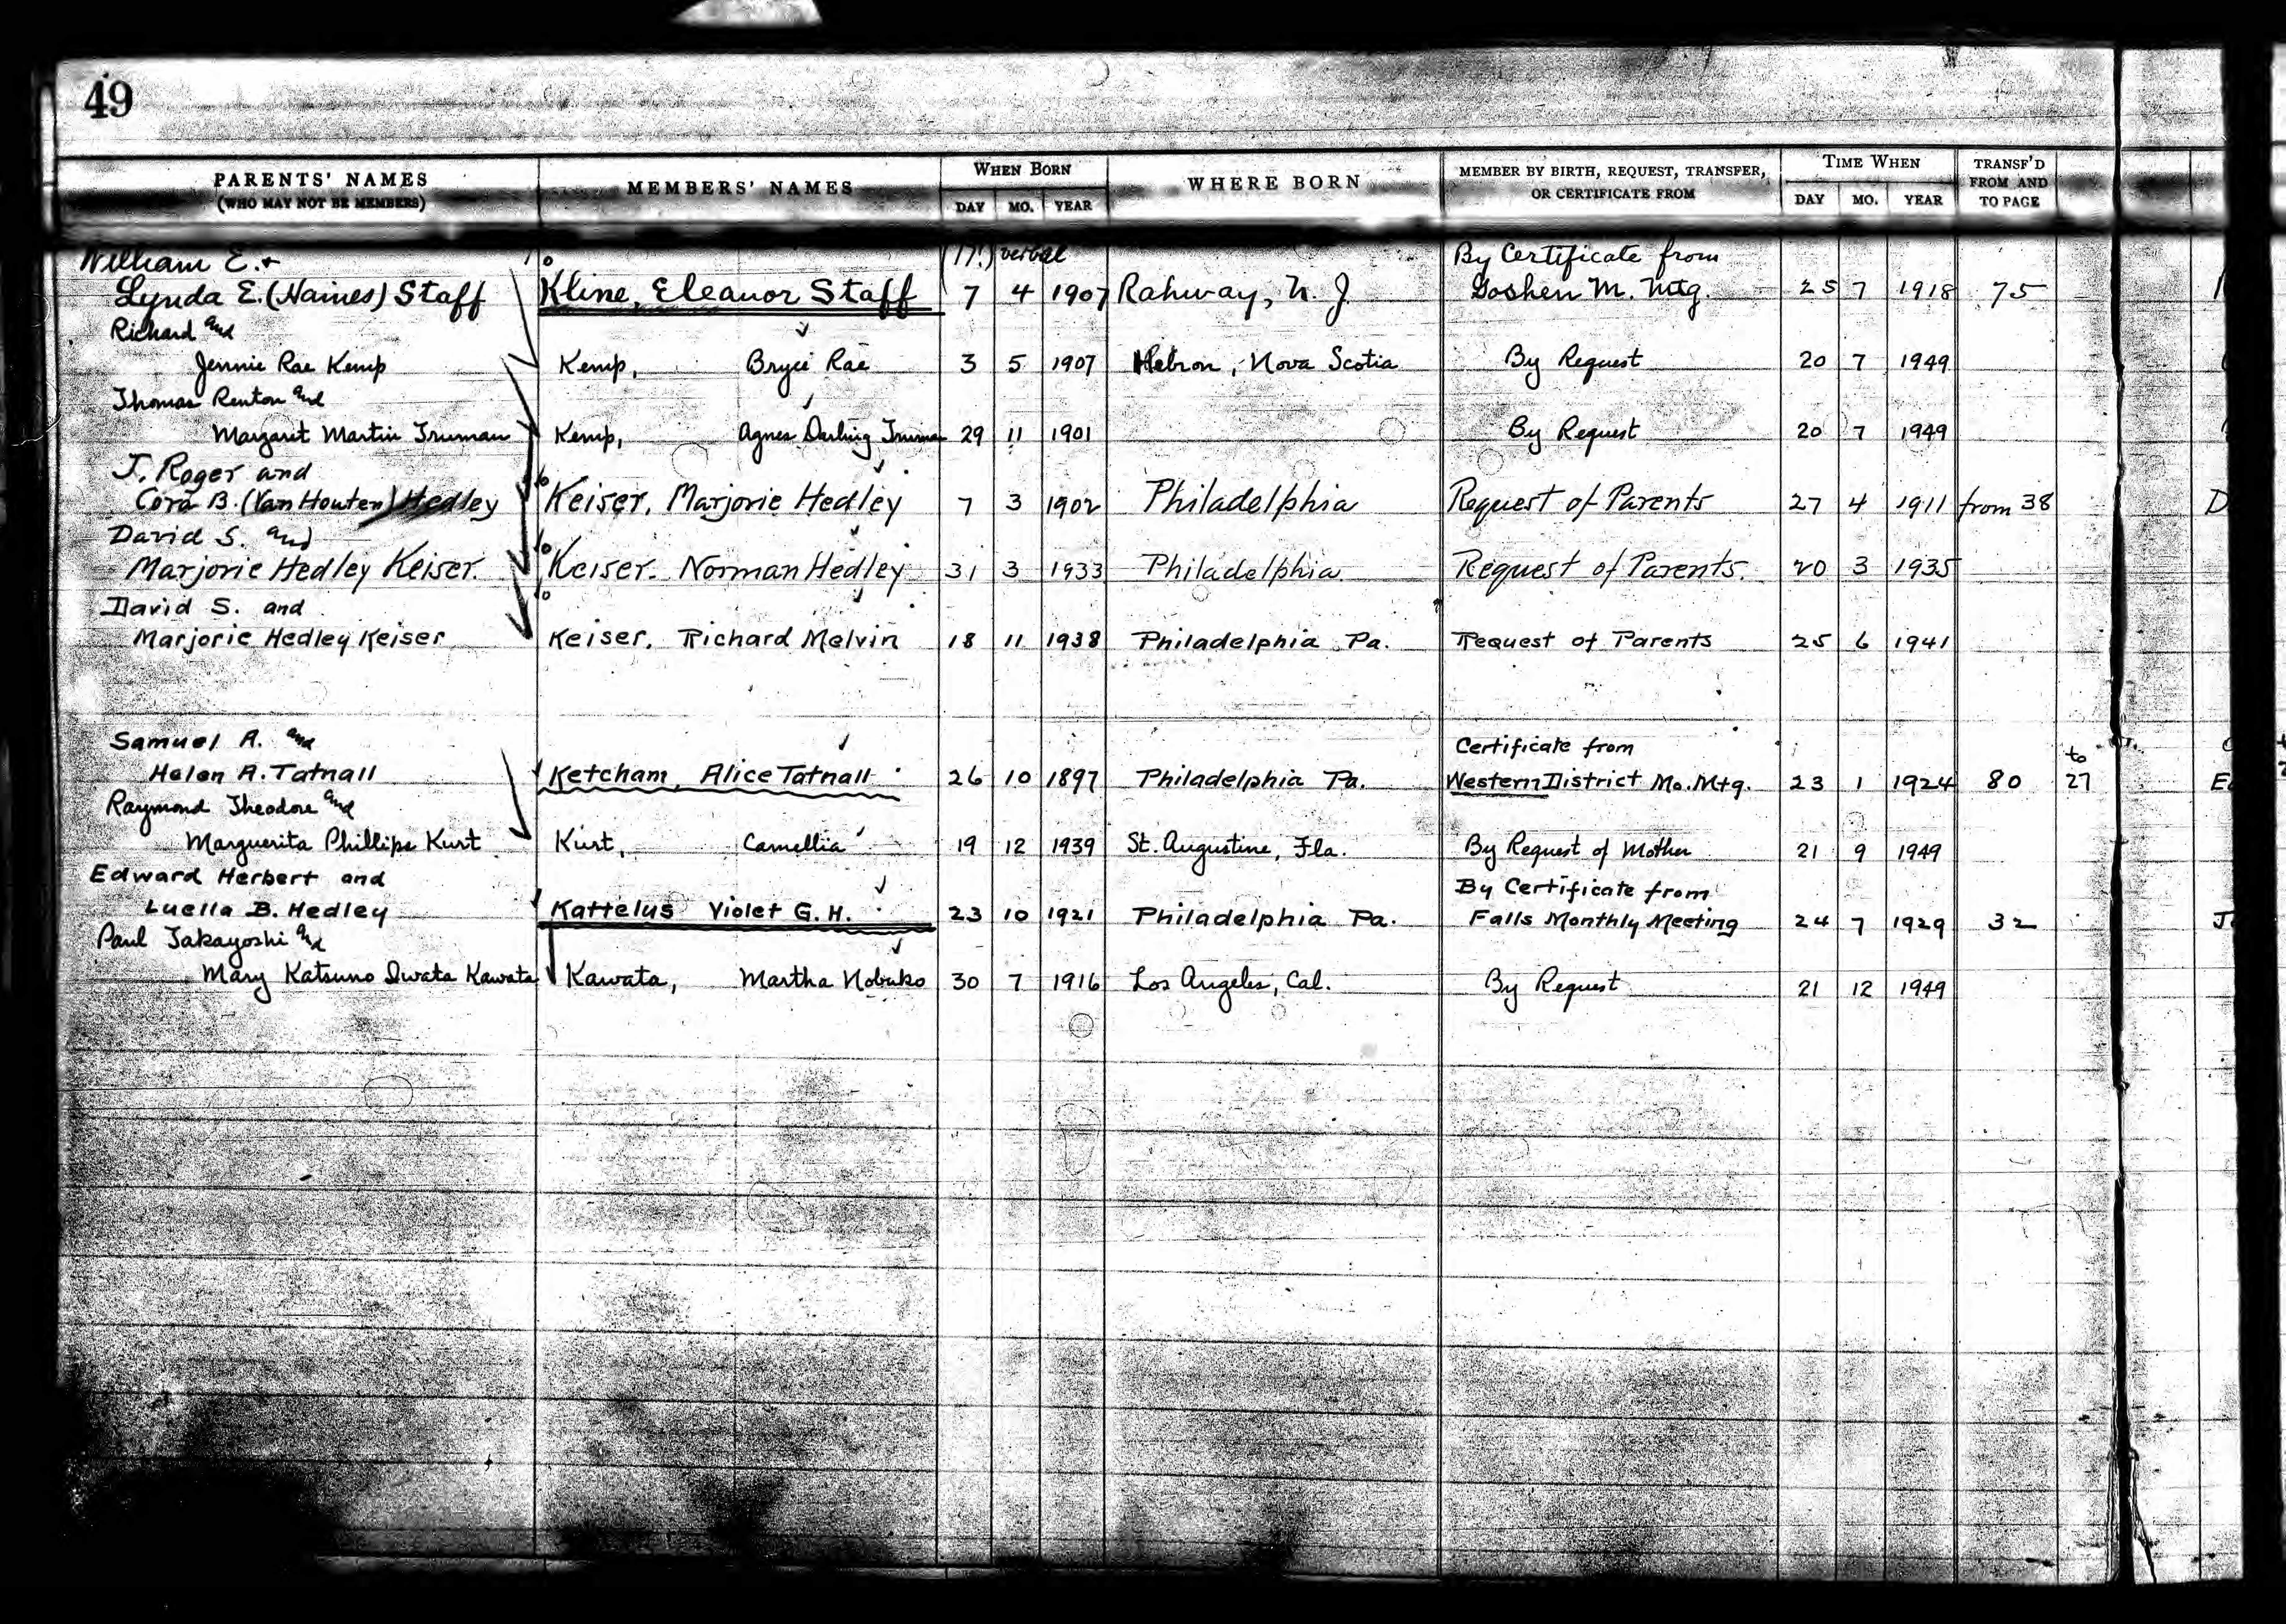 49
PARENTS' NAMES
(WHO MAY NOT BE MEMBERS)
MEMBERS' NAMES
WHEN BORN
DAY MO. YEAR
WHERE BORN
MEMBER BY BIRTH, REQUEST, TRANSFER,
OR CERTIFICATE FROM
TIME WHEN
DAY MO. YEAR
TRANSF'D
FROM AND
TO PAGE
William E. + (17?) verbal By Certificate from
Lynda E. (Haines) Staff Kline, Eleanor Staff 7 4 1907 Rahway, N. J. Goshen M. Mtg. 25 7 1918 75
Richard and
Jennie Rae Kemp Kemp, Bryce Rae 3 5 1907 Hebron, Nova Scotia By Request 20 7 1949
Thomas Renton and
Margaret Martin Truman Kemp, Agnes Darling Truman 29 11 1901 By Request 20 7 1949
J. Roger and
Cora B. (Van Houten) Hedley Keiser, Marjorie Hedley 7 3 1902 Philadelphia Request of Parents 27 4 1911 from 38
David S. and
Marjorie Hedley Keiser. Keiser. Norman Hedley 31 3 1933 Philadelphia Request of Parents. 20 3 1935
David S. and
Marjorie Hedley Keiser Keiser. Richard Melvin 18 11 1938 Philadelphia Pa. Request of Parents 25 6 1941
Samuel A. and Certificate from to
Helen A. Tatnall Ketcham, Alice Tatnall 26 10 1897 Philadelphia Pa. Western District Mo. Mtg. 23 1 1924 80 27
Raymond Theodore and
Marguerita Phillips Kurt Kurt, Camellia 19 12 1939 St. Augustine, Fla. By Request of Mother 21 9 1949
Edward Herbert and By Certificate from
Luella B. Hedley Kattelus Violet G. H. 23 10 1921 Philadelphia Pa. Falls Monthly Meeting 24 7 1929 32
Paul Takayoshi and
Mary Katsuno Iwata Kawata Kawata, Martha Nobuko 30 7 1916 Los Angeles, Cal. By Request 21 12 1949